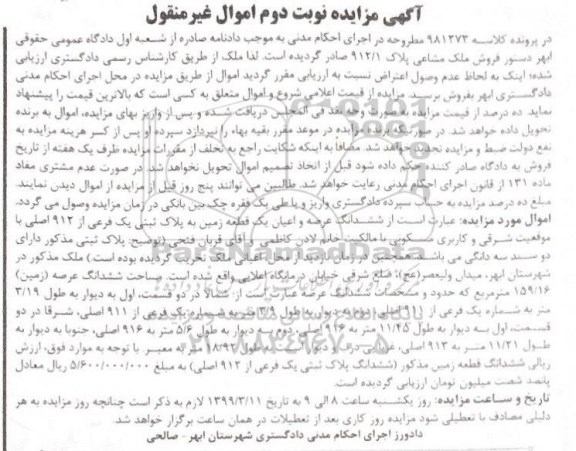 آگهی مزایده نوبت دوم اموال غیرمنقول
در پرونده کلاسه ۹۸۱۲۷۳ مطروحه در اجرای احکام مدنی به موجب دادنامه صادره از شعبه اول دادگاه عمومی حقوقی
ابهر دستور فروش ملک مشاعی پلاک ۹۱۲/۱ صادر گردیده است. لذا ملک از طریق کارشناس رسمی دادگستری ارزیابی
شده؛ اینک به لحاظ عدم وصول اعتراض نسبت به ارزیابی مقرر گردید اموال از طریق مزایده در محل اجرای احکام مدنی
دادگستری ابهر بفروش برسد. مزایده از قیمت اعلامی شروع و اموال متعلق به کسی است که بالاترین قیمت را پیشنهاد
نماید. ده درصد از قیمت مزایده به صورت وجه نقد فی المجلس دریافت شده و پس از واریز بهای مزایده، اموال به برنده
تحویل داده خواهد شد. در صورتیکه برنده مزایده در موعد مقرر بقیه بهاء را نپردازد سپرده او پس از کسر هزینه مزایده به
نفع دولت ضبط و مزایده تجدید خواهد شد. مضافا به اینکه شکایت راجع به تخلف از مقررات مزایده ظرف یک هفته از تاریخ
فروش به دادگاه صادر کننده حکم داده شود قبل از اتخاذ تصمیم اموال تحویل نخواهد شد. در صورت عدم مشتری مفاد
ماده ۱۳۱ از قانون اجرای احکام مدنی رعایت خواهد شد. طالبین می توانند پنج روز قبل از مزایده از اموال دیدن نمایند.
مبلغ ده درصد مزایده به حساب سپرده دادگستری واریز و یا طی یک فقره چک بین بانکی در زمان مزایده وصول می گردد.
اموال مورد مزایده: عبارت است از ششدانگ عرصه و اعیان یک قطعه زمین به پلاک ثبتی یک فرعی از ۹۱۲ اصلی با
موقعیت شرقی و کاربری مسکونی با مالکیت خانم لادن کاظمی و آقای قربان فتحی (توضیح: پلاک ثبتی مذکور دارای
دو سند سه دانگی می باشد، همچنین در زمان بازدید از محل اعیانی ملک تخریب گردیده بوده است.) ملک مذکور در
شهرستان ابهر، میدان ولیعصر(عج)، ضلع شرقی خیابان درمانگاه اعلایی واقع شده است. مساحت ششدانگ عرصه (زمین)
۱۵۹/۱۶ مترمربع که حدود و مشخصات ششدانگ عرصه عبارت است از: شمالا در دو قسمت، اول به دیوار به طول ۳/۱۹
متر به شماره یک فرعی از ۹۱۱ اصلی، دوم به دیوار به طول متر به شماره یک فرعی از ۹۱۱ اصلی، شرقا در دو
قسمت، اول به دیوار به طول ۱۱/۴۵ متر به ۹۱۶ اصلی، دوم به دیوار به طول ۵/۶ متر به ۹۱۶ اصلی، جنوبا به دیوار به
طول ۱۱/۲۱ متر به ۹۱۳ اصلی، غربا درب و دیوار به طول متر به معبر. با توجه به موارد فوق، ارزش
ریالی ششدانگ قطعه زمین مذکور (ششدانگ پلاک ثبتی یک فرعی از ۹۱۲ اصلی) به مبلغ ۵/۶۰۰/۰۰۰/۰۰۰ ریال معادل
پانصد شصت میلیون تومان ارزیابی گردیده است.
تاریخ و ساعت مزایده: روز یکشنبه ساعت ۸ الی ۹ به تاریخ ۱۳۹۹/۳/۱۱ لازم به ذکر است چنانچه روز مزایده به هر
دلیلی مصادف با تعطیلی شود مزایده روز کاری بعد از تعطیلات در همان ساعت برگزار خواهد شد.
دادورز اجرای احکام مدنی دادگستری شهرستان ابهر - صالحی